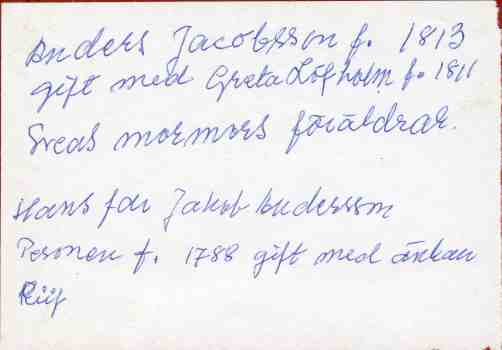 Anders Jacobsson f. 1813
gift med Greta Löfholm f. 1811
Sveas mormors föräldrar.
Hans far Jakob Andersson
Personen f. 1788 gift med änkan